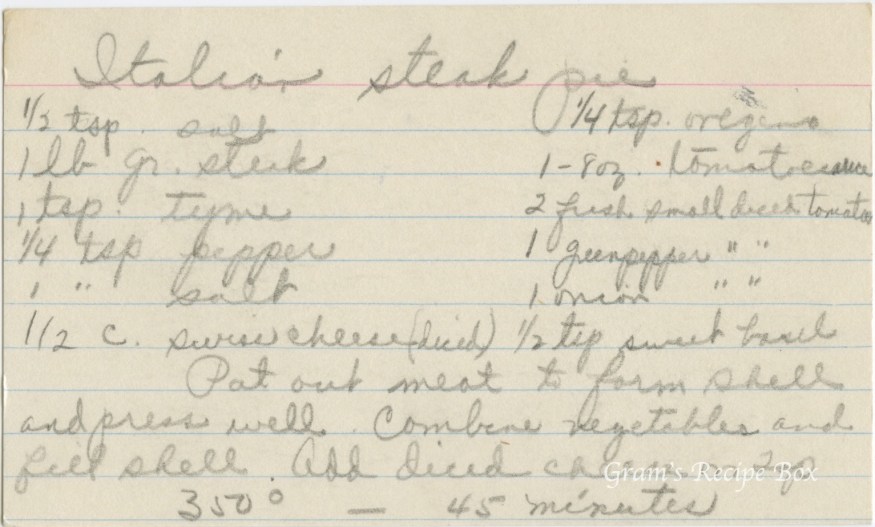 Italian steak pie
1/2 tsp. salt 1/4 tsp. oregano
1 lb gr. steak 1-8oz. tomatoesauce
1 tsp. tyme 2 fresh small diced tomatoes
1/4 tsp pepper 1 greenpepper " "
1 " salt 1 onion " "
1/2 c. swiss cheese (diced) 1/2 tsp sweet basil
Pat out meat to form shell
and press well. Combine vegetables and
fill shell. Add diced
Gram's Recipe Box
350° — 45 minutes